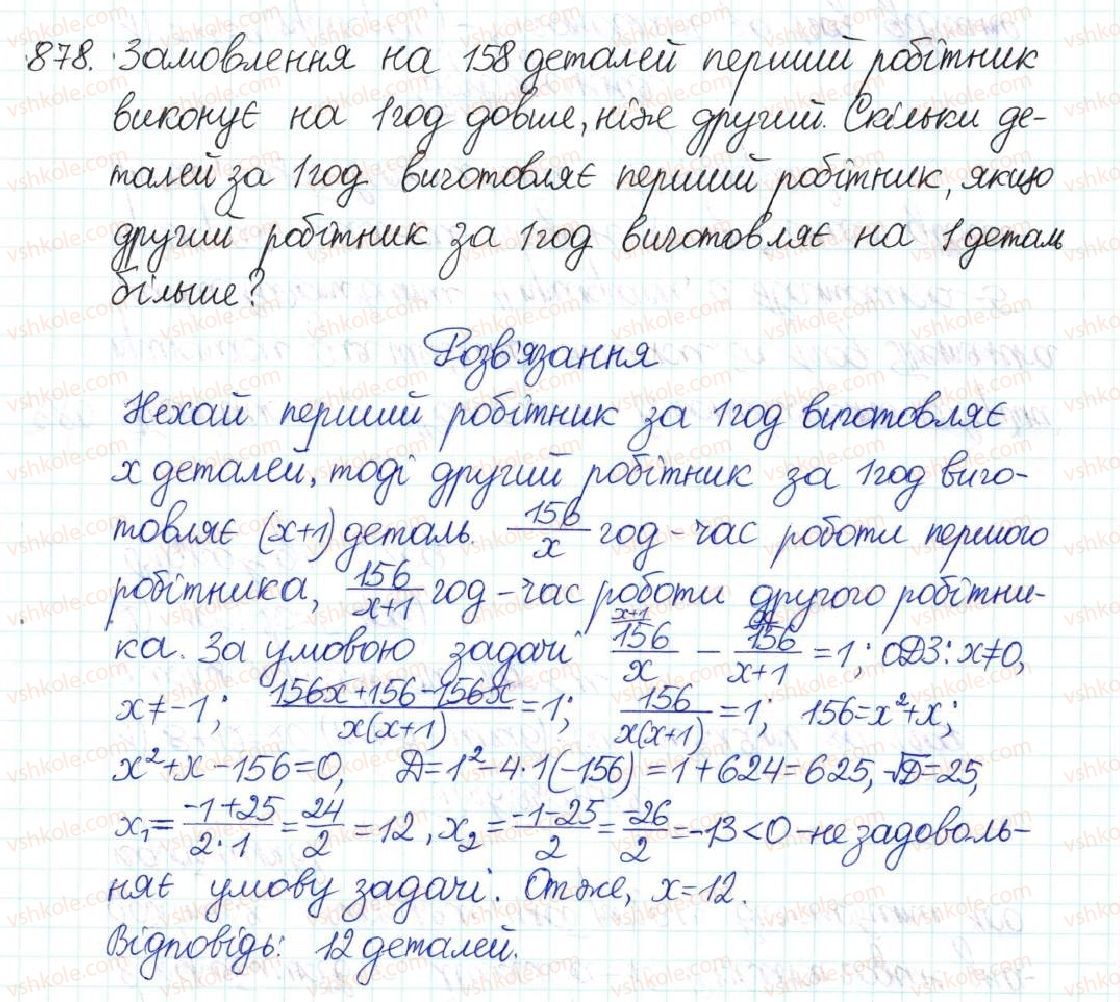 878. Замовлення на 158 деталей перший робітник
виконує на 1 год довше, ніж другий. Скільки де-
талей за 1 год виготовляє перший робітник, якщо
другий робітник за 1 год виготовляє на 1 деталь
більше?
Розв'язання
Нехай перший робітник за 1 год виготовляє
x деталей, тоді другий робітник за 1 год виго-
товляє (x+1) деталь. 156/x год - час роботи першого
робітника, 156/(x+1) год - час роботи другого робітни-
ка. За умовою задачі 156/x - 156/(x+1) = 1; ОДЗ: x≠0,
x≠-1; (156x+156-156x)/(x(x+1)) = 1; 156/(x(x+1)) = 1; 156=x²+x;
x²+x-156=0, D=1²-4·1(-156)=1+624=625, √D=25,
x₁=(-1+25)/(2·1)=24/2=12, x₂=(-1-25)/2=-26/2=-13<0 - не задоволь-
няє умову задачі. Отже, x=12.
Відповідь: 12 деталей.